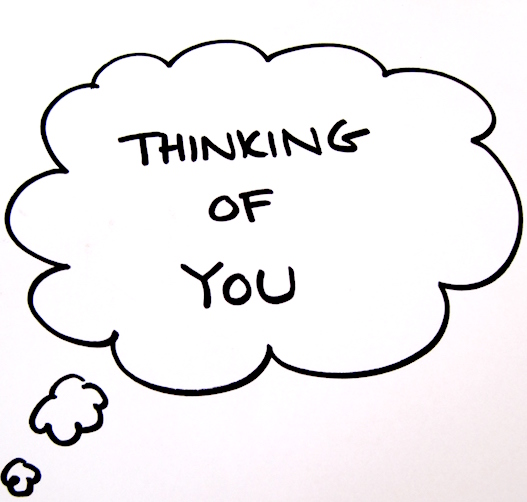 THINKING
OF
YOU